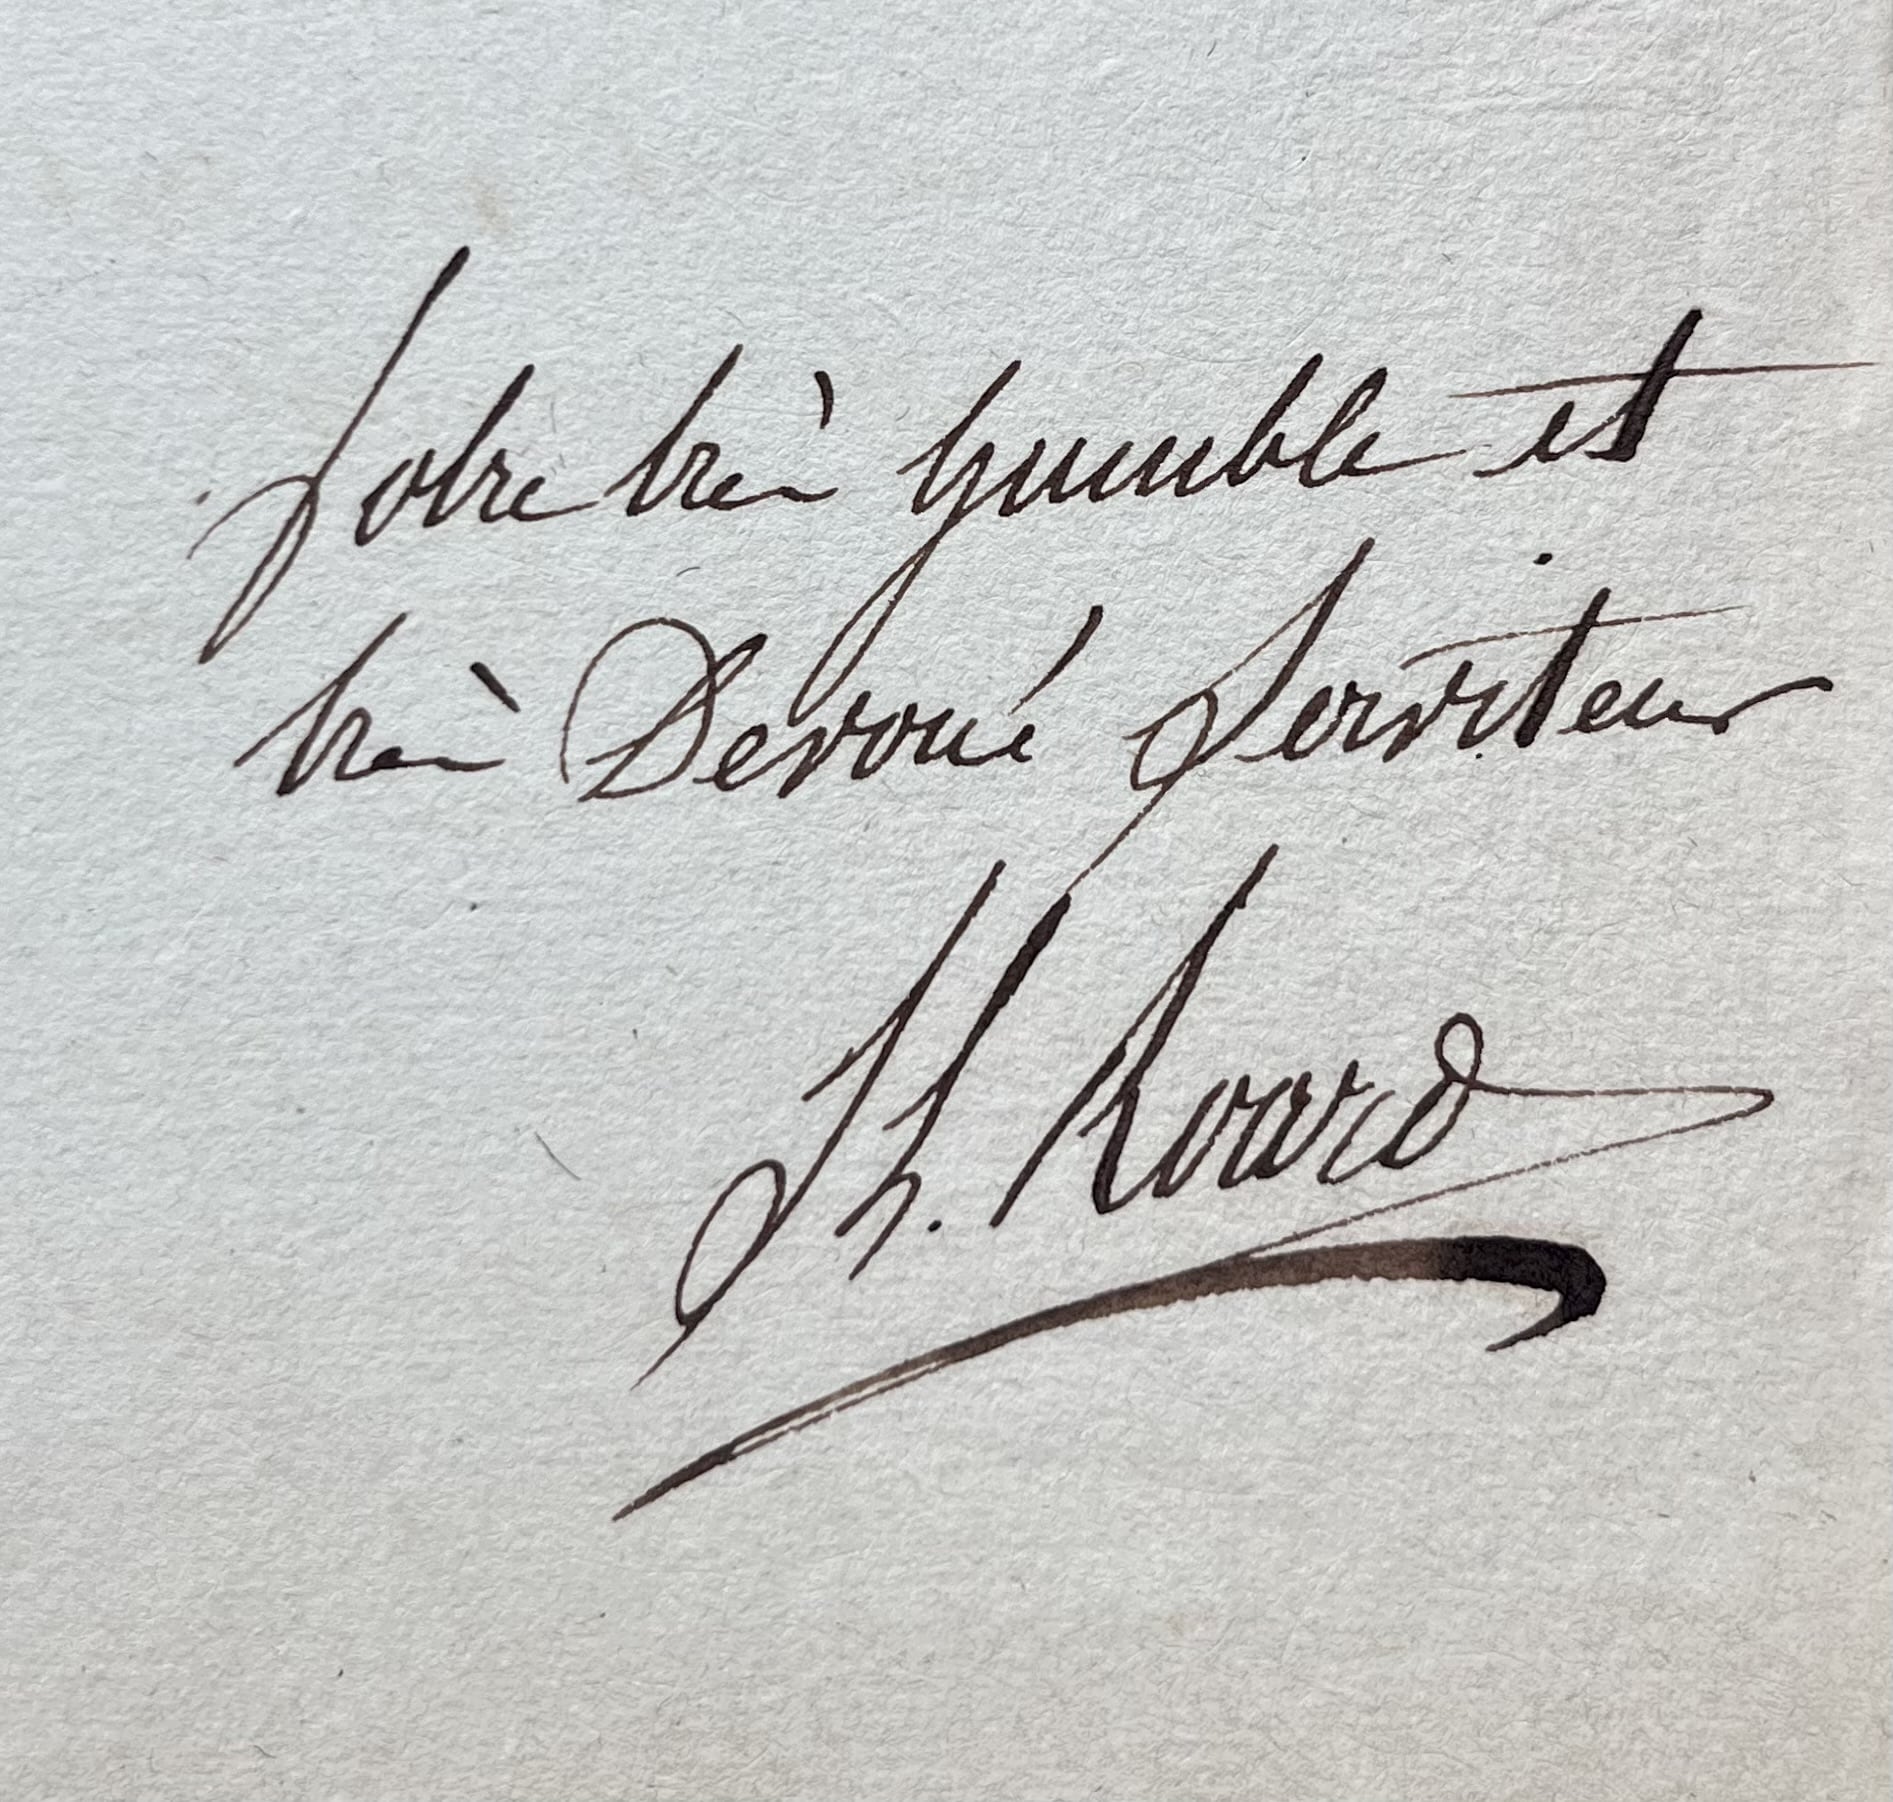 Votre très humble et
très Dévoué Serviteur
Th. Roard